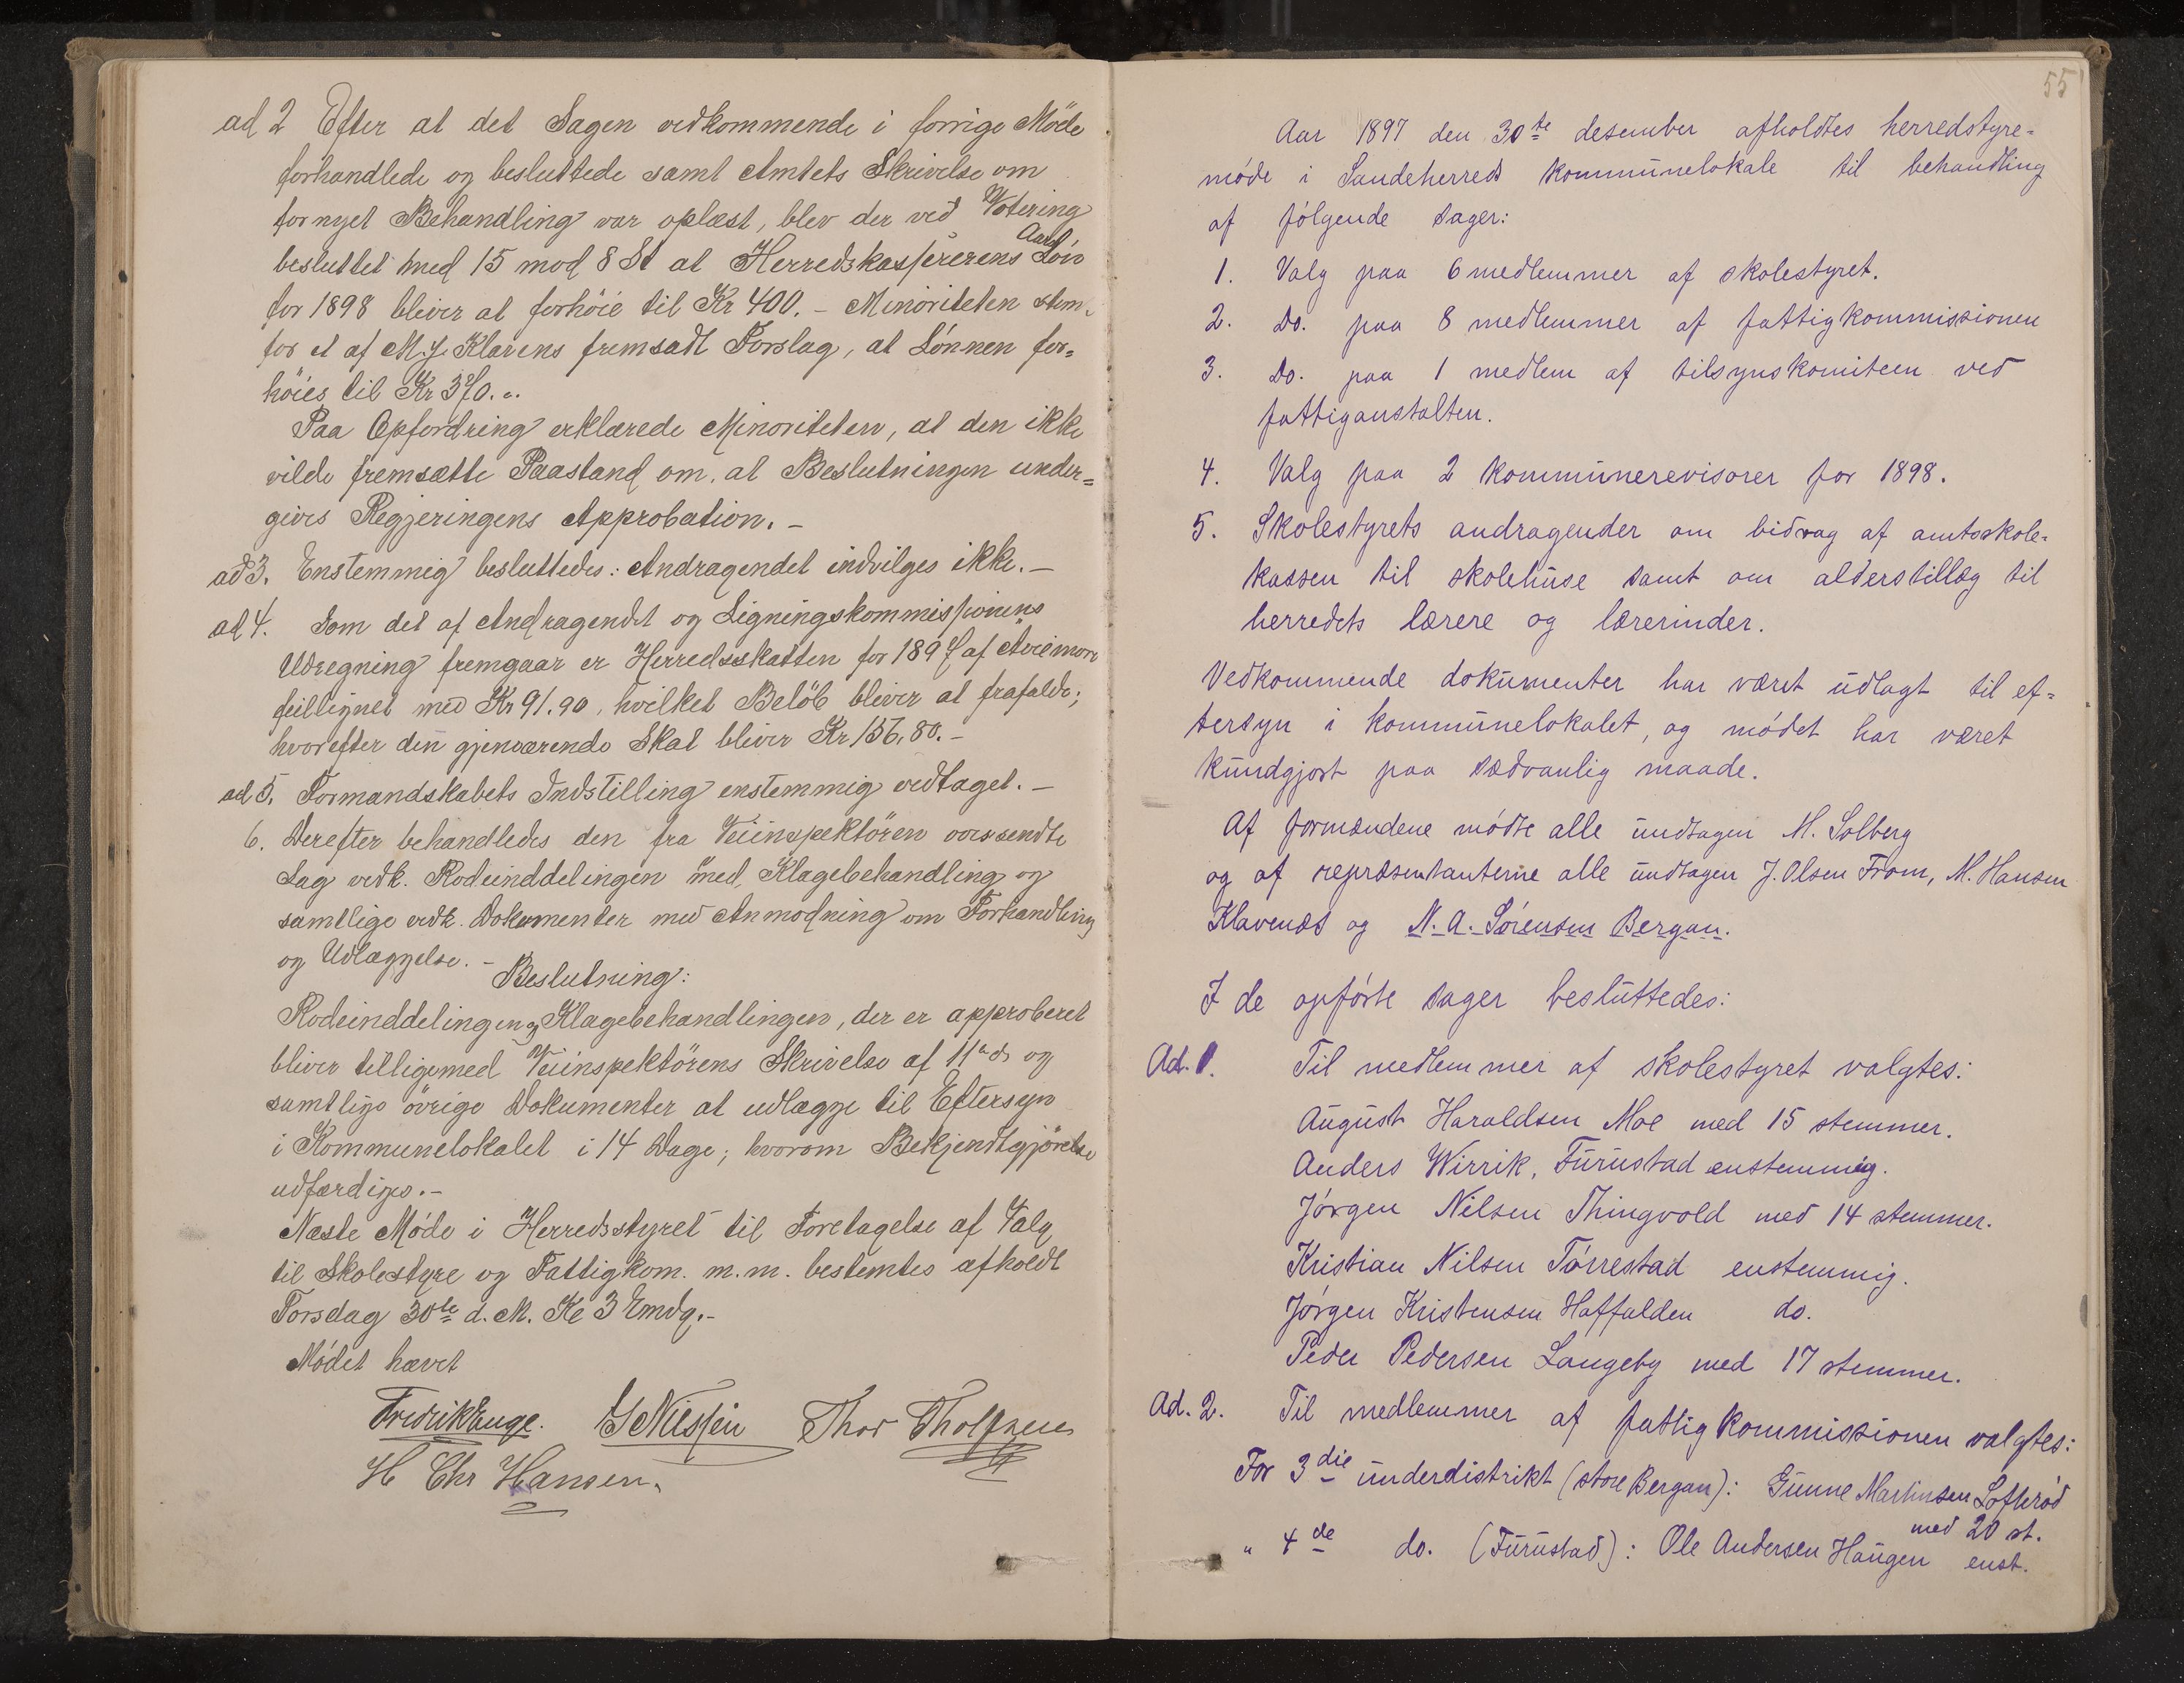 ad 2 Efter at det Sagen vedkommende i forrige Möde
forhandlede og besluttede samt Amtets Skrivelse om
fornyet Behandling var oplæst, blev der ved Votering
besluttet med 15 mod 8 St at Herredskasserenens Aars Lön
for 1898 bliver at forhöie til Kr 400. - Minoriteten stem.
for et af M. J. Klavens fremsadt Forslag, at Lönnen for=
höies til Kr 370. "
Paa Opfordring erklærede Minoriteten, at den ikke
vilde fremsætte Paastand om, at Beslutningen under=
gives Regjeringens Approbation. -
ad 3. Enstemmig besluttedes: Andragendet indvilges ikke. -
ad 4. Som det af Andragendet og Ligningskommissionens
Udregning fremgaar er Herredsskatten for 1897 af
feillignet med Kr 91.90, hvilket Belöb bliver at frafalde;
hvorefter den gjenværende Skat bliver Kr 156,80. -
ad 5. Formandskabets Indstilling enstemmig vedtaget. -
6. Derefter behandledes den fra Veiinspektören oversendte
Sag vedk. Rodeinddelingen med Klagebehandling og
samtlige vedk. Dokumenter med Anmodning om Forhandling
og Udlæggelse. -
Beslutning:
Rodeinddelingen og Klagebehandlingen, der er approberet
bliver tilligemed Veiinspektörens Skrivelse af 11te ds og
samtlige övrige Dokumenter at udlægge til Eftersyn
i Kommunelokalet i 14 Dage; hvorom Bekjendtgjörelse
udfærdiges. -
Næste Möde i Herredsstyret til Foretagelse af Valg
til Skolestyre og Fattigkom. m.m. bestemtes afholdt
Torsdag 30te d. M. Kl 3 Emdg. -
Mödet hævet
Fredrik Enge. G Nilssen Thor Tholfsen
H Chr Hansen.
55
Aar 1897 den 30te desember afholdtes herredstyre=
møde i Sandeherreds kommunelokale til behandling
af følgende sager:
1. Valg paa 6 medlemmer af skolestyret.
2. Do. paa 8 medlemmer af fattigkommissionen
3. Do. paa 1 medlem af tilsynskomiteen ved
fattiganstalten.
4. Valg paa 2 kommunerevisorer for 1898.
5. Skolestyrets andragender om bidrag af amtsskole=
kassen til skolehuse samt om alderstillæg til
herredets lærere og lærerinder.
Vedkommende dokumenter har været udlagt til ef=
tersyn i kommunelokalet, og mødet har været
kundgjort paa sædvanlig maade.
Af formændene mødte alle undtagen M. Solberg
og af repræsentanterne alle undtagen J. Olsen Fram, M. Hansen
Klavenæs og N. A. Sørensen Bergan.
I de opførte sager besluttedes:
Ad. 1. Til medlemmer af skolestyret valgtes:
August Haraldsen Moe med 15 stemmer.
Anders Wirrik, Furustad enstemmig.
Jørgen Nilsen Thingvold med 14 stemmer.
Kristian Nilsen Tørrestad enstemmig.
Jørgen Kristensen Haffalden do.
Peder Pedersen Langeby med 17 stemmer.
Ad. 2. Til medlemmer af fattigkommissionen valgtes:
For 3die underdistrikt (store Bergan): Gunne Martinsen Lofterød
med 20 st.
" 4de do. (Furustad): Ole Andersen Haugen enst.